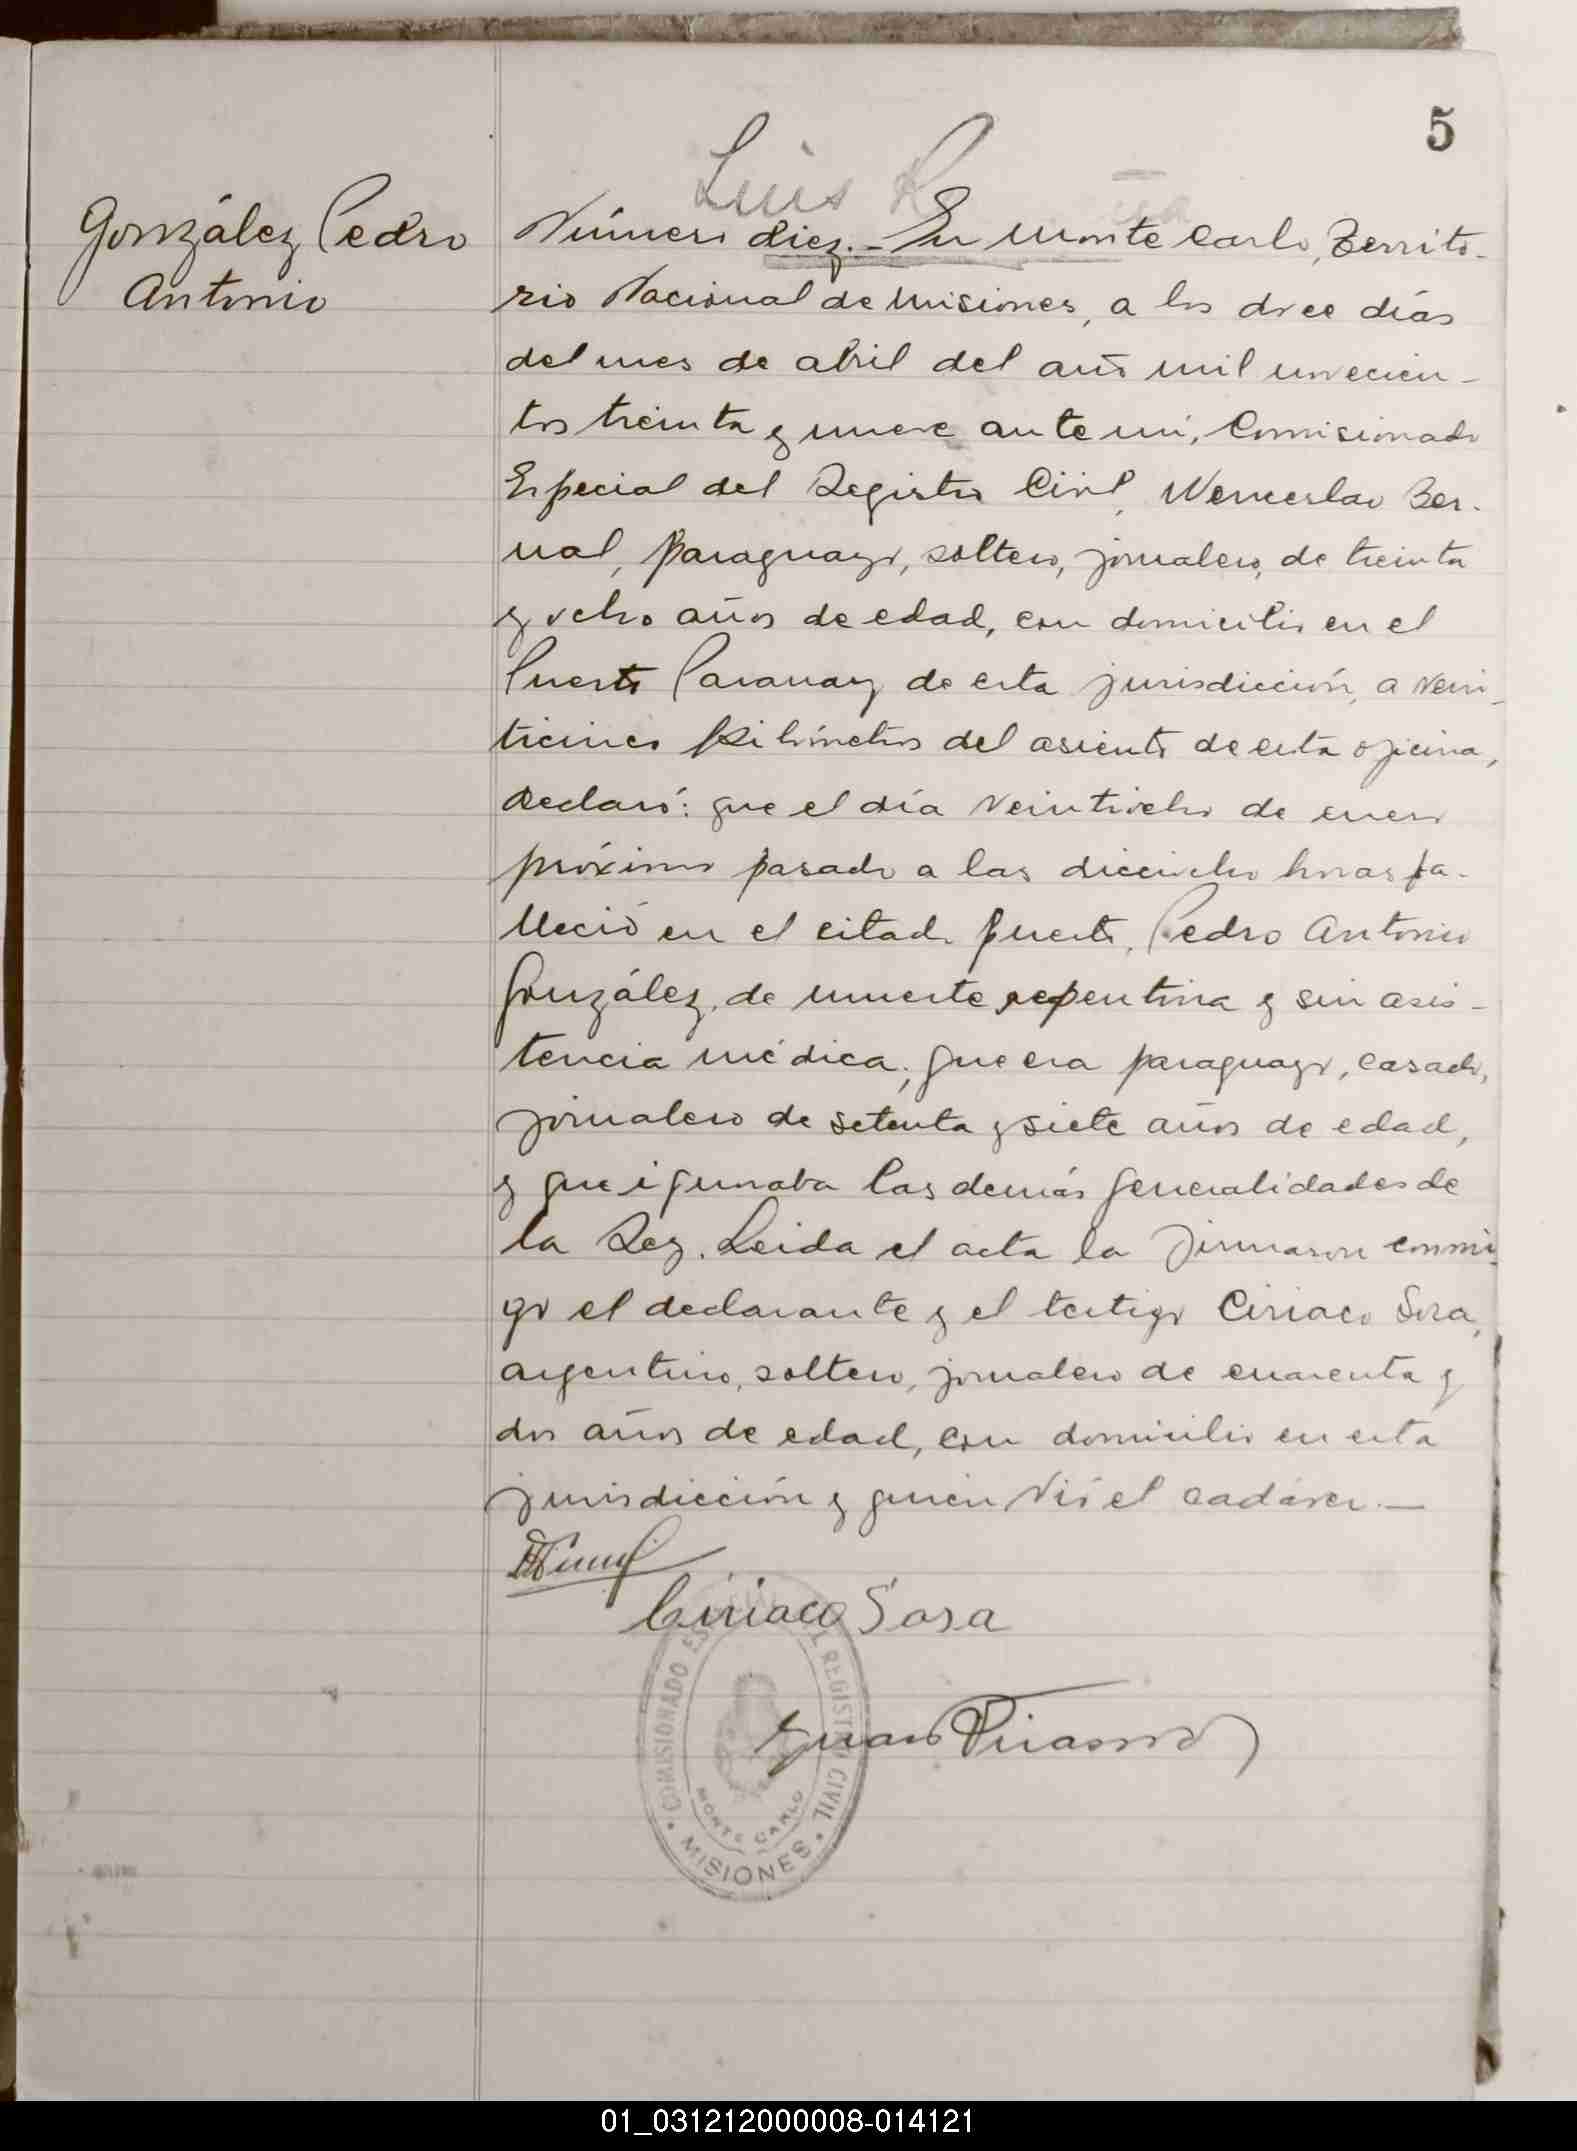 5
Luis R
González Pedro
Antonio
Número diez.- En Monte Carlo, Territo-
rio Nacional de Misiones, a los doce días
del mes de abril del año mil novecien-
tos treinta y nueve ante mí, Comisionado
Especial del Registro Civil, Wenceslao Ber-
nal, paraguayo, soltero, jornalero, de treinta
y ocho años de edad, con domicilio en el
Puerto Paranay de esta jurisdicción, a vein-
ticinco kilómetros del asiento de esta oficina,
declaró: que el día veintiocho de enero
próximo pasado a las dieciocho horas fa-
lleció en el citado puerto, Pedro Antonio
González, de muerte repentina y sin asis-
tencia médica; que era paraguayo, casado,
jornalero de setenta y siete años de edad,
y que ignoraba las demás generalidades de
la Ley. Leida el acta la firmaron conmi-
go el declarante y el testigo Ciriaco Sosa,
argentino, soltero, jornalero de cuarenta y
dos años de edad, con domicilio en esta
jurisdicción y quien vió el cadáver.—
Ciriaco Sosa
Juan
COMISIONADO ES L REGISTRO CIVIL
MONTE CARLO
MISIONES
01_031212000008-014121